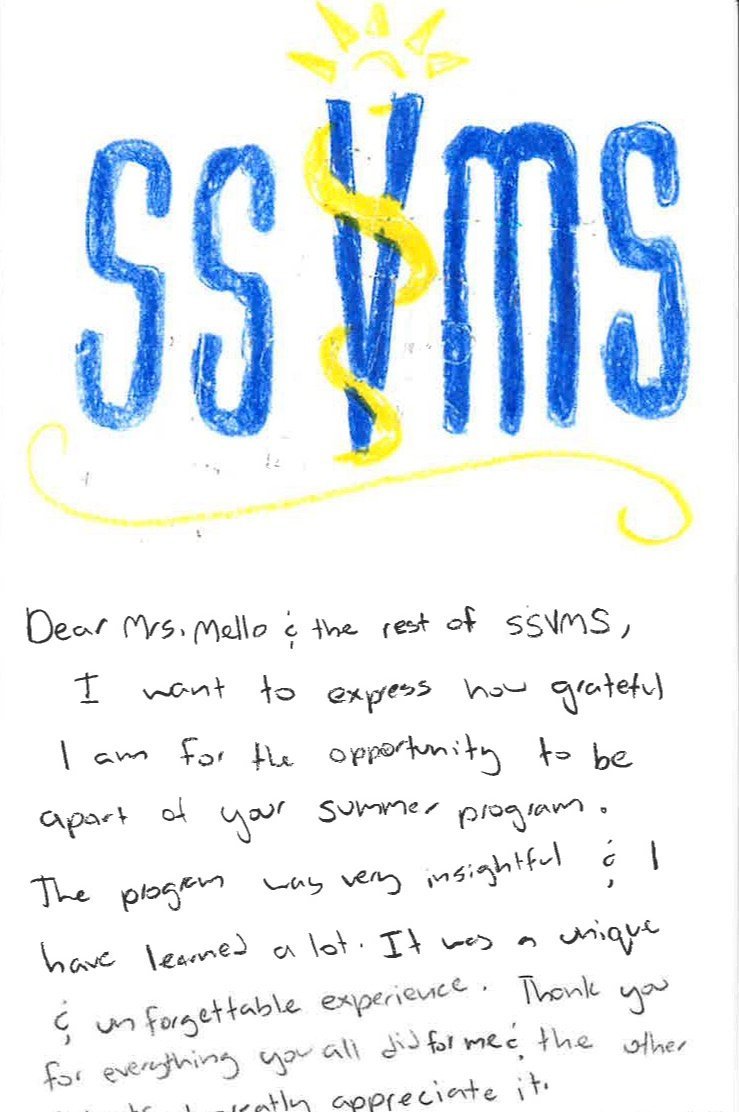 SSVMS
Dear Mrs. Mello & the rest of SSVMS,
I want to express how grateful
I am for the opportunity to be
apart of your summer program.
The program was very insightful & I
have learned a lot. It was a unique
& unforgettable experience. Thank you
for everything you all did for me & the other
appreciate it.